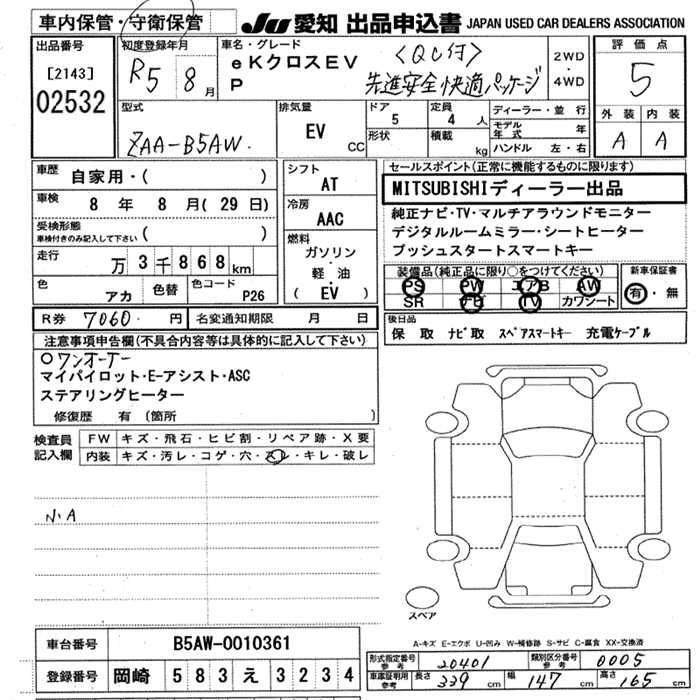 車内保管・守衛保管
JU 愛知 出品申込書 JAPAN USED CAR DEALERS ASSOCIATION
出品番号
[2143]
02532
初度登録年月
R5 8月
車名・グレード
eKクロスEV
P
〈QC付〉
先進安全快適パッケージ
2WD
・
4WD
評価点
5
外装 内装
A A
型式
ZAA-B5AW
排気量
EV CC
ドア
5
定員
4人
形状
積載
kg
ディーラー・並行
モデル年式 年
ハンドル 左・右
車歴
自家用・( )
車検
8年8月(29日)
受検形態
車検付きのみ記入して下さい ( )
走行
万3千868km
色
アカ
色替
色コード
P26
シフト
AT
冷房
AAC
燃料
ガソリン
・
軽・油
(EV)
セールスポイント(正常に機能するものに限ります)
MITSUBISHIディーラー出品
純正ナビ・TV・マルチアラウンドモニター
デジタルルームミラー・シートヒーター
プッシュスタートスマートキー
装備品(純正品に限り○をつけてください)
PS PW エアB AW
SR ナビ TV カワシート
新車保証書
有・無
R券 7060・ 円
名変通知期限 月 日
後日品
保 取 ナビ取 スペアスマートキー 充電ケーブル
注意事項申告欄(不具合内容等は具体的に記入して下さい)
○ワンオーナー
マイパイロット・E-アシスト・ASC
ステアリングヒーター
修復歴 有 (箇所 )
検査員記入欄
FW キズ・飛石・ヒビ割・リペア跡・X要
内装 キズ・汚レ・コゲ・穴・スレ・キレ・破レ
小A
スペア
A-キズ E-エクボ U-凹み W-補修跡 S-サビ C-腐食 XX-交換済
車台番号 B5AW-0010361
登録番号 岡崎 583 え 3234
形式指定番号 参考 20401
類別区分番号 参考 0005
車庫証明用 参考 長さ 339 幅 147 高さ 165 cm